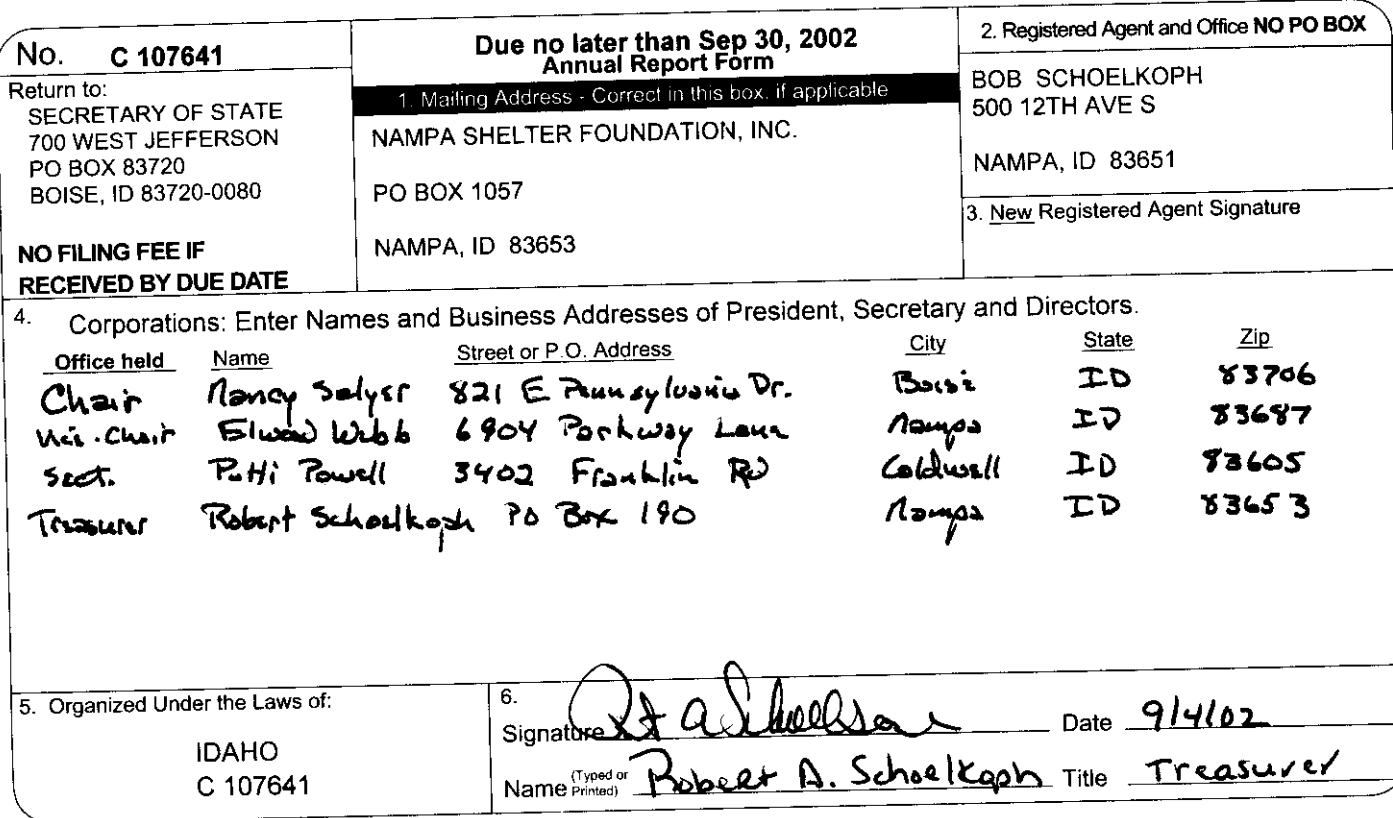 No. C 107641
Return to:
SECRETARY OF STATE
700 WEST JEFFERSON
PO BOX 83720
BOISE, ID 83720-0080
NO FILING FEE IF
RECEIVED BY DUE DATE
Due no later than Sep 30, 2002
Annual Report Form
1. Mailing Address - Correct in this box, if applicable
NAMPA SHELTER FOUNDATION, INC.
PO BOX 1057
NAMPA, ID 83653
2. Registered Agent and Office NO PO BOX
BOB SCHOELKOPH
500 12TH AVE S
NAMPA, ID 83651
3. New Registered Agent Signature
4. Corporations: Enter Names and Business Addresses of President, Secretary and Directors.
Office held Name Street or P.O. Address City State Zip
Chair Nancy Salyer 821 E Pennsylvania Dr. Boise ID 83706
Vice-Chair Elwood Webb 6904 Parkway Lane Nampa ID 83687
Sect. Patti Powell 3402 Franklin Rd Caldwell ID 83605
Treasurer Robert Schoelkoph PO Box 190 Nampa ID 83653
5. Organized Under the Laws of:
IDAHO
C 107641
6.
Signature Date 9/4/02
Name (Typed or Printed) Robert A. Schoelkoph Title Treasurer